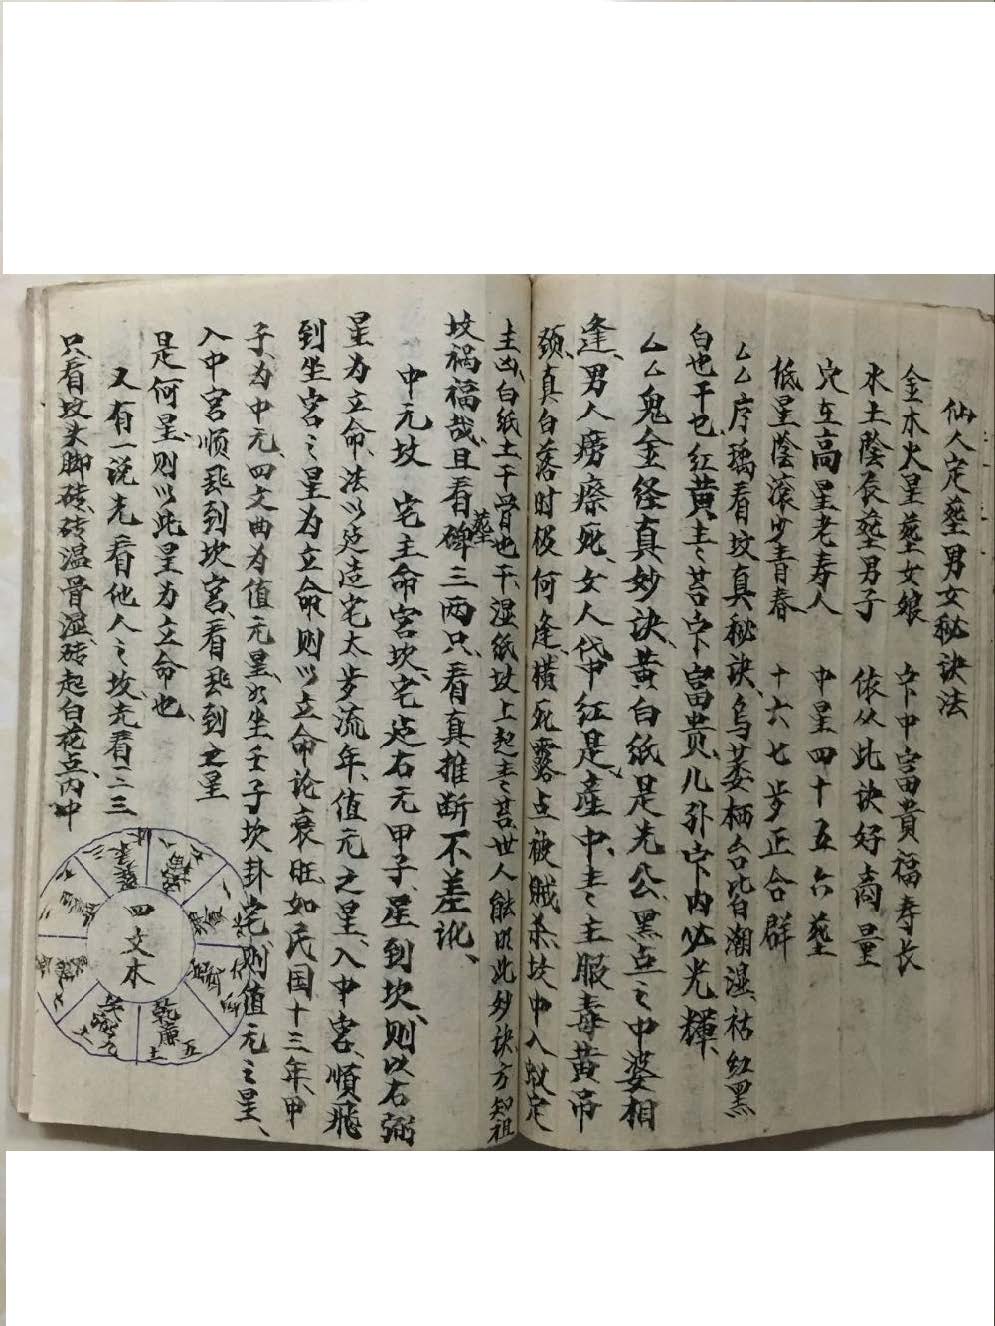 仙人定墓男女秘诀法
金木火星墓女娘　穴中富貴福寿长
水土陰辰墓男子　依从此诀好商量
穴在高星老寿人　中星四十五六墓
低星陰滚少青春　十六七岁正合群
厶厶序瑀看坟真秘诀、乌萎栖台皆潮湿、祜红黑
白也干也、红黄主主苔穴富贵、儿孙穴内必光輝、
厶厶鬼金经真妙诀、黄白纸是先公、黑点之中婆相
逢、男人痨瘵死、女人代中红是產中、主主主服毒黄吊
颈、真白落时极何逢、横死露点被贼杀、坟中入蚁定
主凶、白纸土干骨也干、湿纸坟上起主苔、世人能明此妙诀、方知祖
坟祸福哉、且看碑墓三两只、看真推断不差讹、
中元坟　宅主命宫坎、宅造右元甲子、星到坎、则以右弼
星为立命、法以造造宅太岁流年、值元之星、入中宫、順飛
到坐宫之星为立命、则以立命论衰旺、如民国十三年、甲
子、为中元、四文曲为值元星、如坐壬子坎卦宅、则值元之星、
入中宫、顺飛到坎宫、看飛到之星
是何星、则以此星为立命也、
又有一说先看他人之坟、先看二三
只、看坟头脚砖、砖温骨湿、砖起白花点、内中
四文木
乾廉
五
土